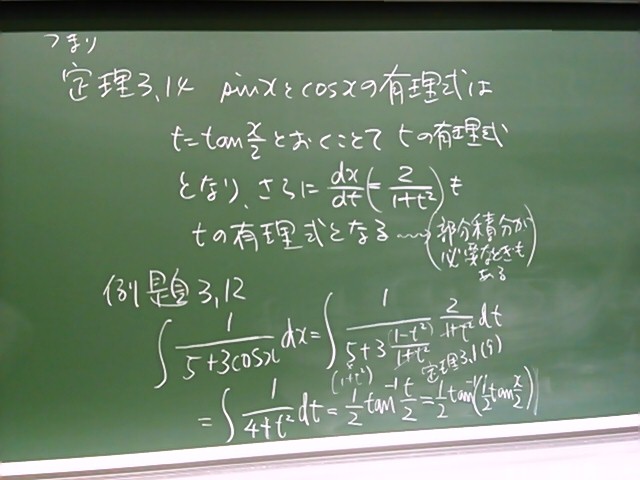 つまり
定理3.14 sinxとcosxの有理式は
t=tan x/2 とおくことで tの有理式
となり、さらに dx/dt (= 2/(1+t²)) も
tの有理式となる ⇝ (部分積分が
必要なときも
ある)
例題3.12
∫ 1/(5+3cosx) dx = ∫ 1/(5+3 (1-t²)/(1+t²)) 2/(1+t²) dt
(1+t²) 定理3.1(9)
= ∫ 1/(4+t²) dt = 1/2 tan⁻¹ t/2 = 1/2 tan⁻¹(1/2 tan x/2)